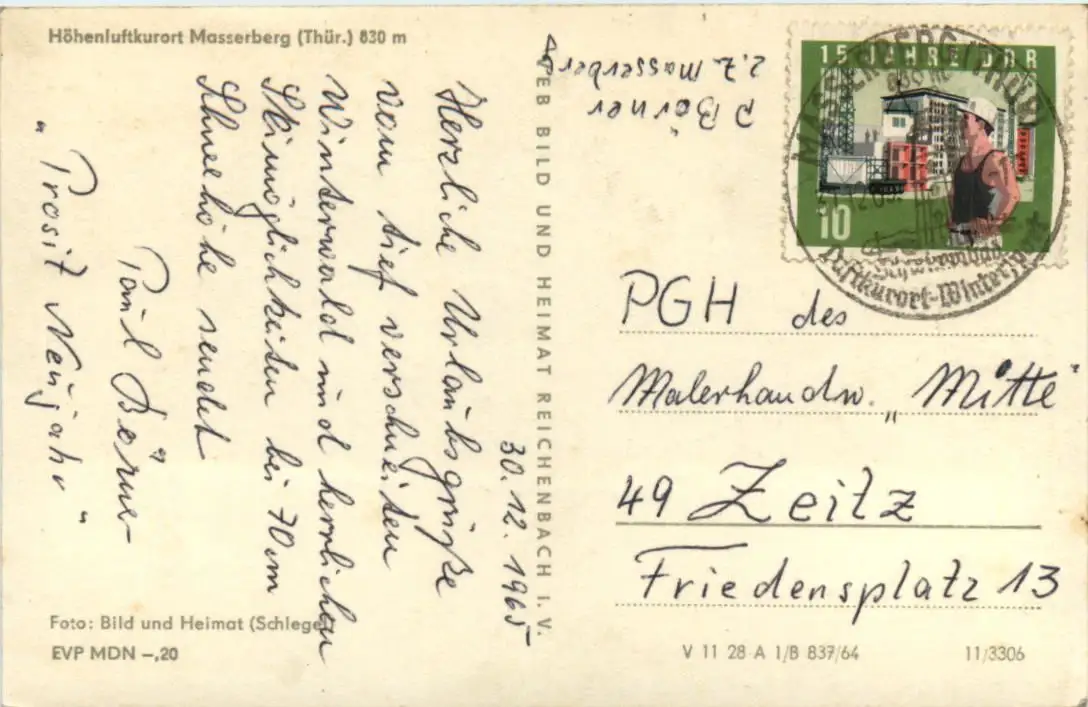 Höhenluftkurort Masserberg (Thür.) 830 m
30. 12. 1965
Herzliche Urlaubsgrüße
vom tief verschneiten
Winterwald und herrlichen
Skimöglichkeiten bei 70 cm
Schneehöhe sendet
Paul Börner
„Prosit Neujahr"
Foto: Bild und Heimat (Schlegel)
EVP MDN –,20
VEB BILD UND HEIMAT REICHENBACH I. V.
P Börner
z. Z. Masserberg
15 JAHRE DDR
10
MASSERBERG (THÜR)
830 m
Luftkurort-Wintersport
PGH des
Malerhandw. „Mitte"
49 Zeitz
Friedensplatz 13
V 11 28 A 1/B 837/64
11/3306